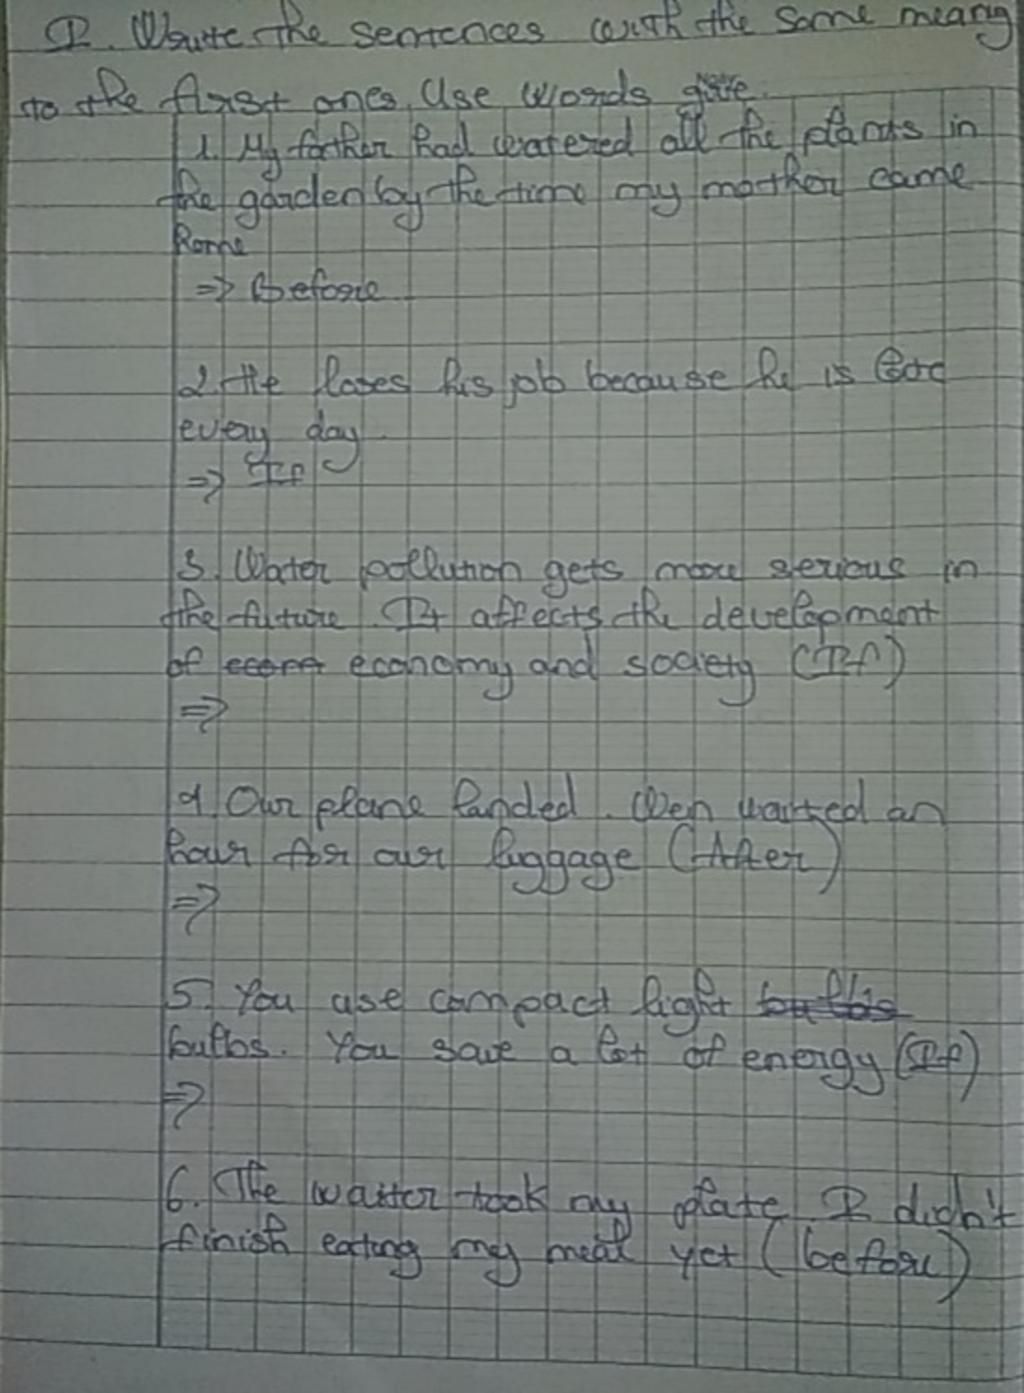 I. Write the sentences with the same meang
to the first ones. Use words
1. My father had watered all the plants in
the garden by the time my mother came
home
=> Before
2. He loses his job because he is late
every day.
=> If
3. Water pollution gets more serious in
the future. It affects the development
of economy and society (If)
=>
4. Our plane landed. waited an
hour for our luggage (After)
=>
5. You use compact light
bulbs. You save a lot of energy (If)
=>
6. The waiter took my plate. I didn't
finish eating my meal yet (before)